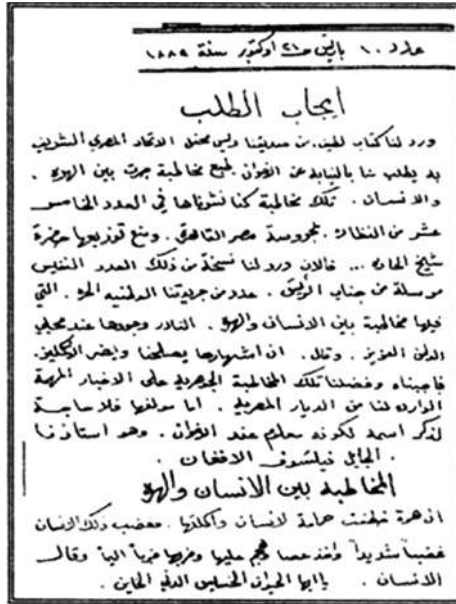 عدد ١٠ باريس في ٢١ اوكتوبر سنة ١٨٨٩
ايجاب الطلب
ورد لنا كتاب لطيف من صديقنا رئيس محفل الاتحاد المصري الشريف
به يطلب منا بالنيابة عن الاخوان طبع مخاطبة جرت بين الهرة
والانسان . تلك مخاطبة كنا نشرناها في العدد الخامس
عشر من النظارة بمحروسة مصر القاهرة . ومنع توزيعها حضرة
شيخ الحارة ... فالان ورد لنا نسخة من ذلك العدد النفيس
مرسلة من جناب الرئيس . عدد من جريدتنا الوطنيه الحره . التي
فيها مخاطبة بين الانسان والهرة . النادر وجودها عند محبي
الوطن العزيز . وقال . ان اشهارها يصلحنا ويضر
فاجبناه وفضلنا تلك المخاطبة الجوهرية على الاخبار المهمة
الوارده لنا من الديار المصرية . اما مولفها فلا حاجة
لذكر اسمه لكونه معلوم عند الاخوان . وهو استاذنا
. الجليل فيلسوف الافغان .
المخاطبة بين الانسان والهرة
ان هرة خطفت حمامة لانسان واكلتها . فغضب ذلك الانسان
غضباً شديداً واخذ عصا هجم عليها وضربها ضرباً اليماً وقال
الانسان . يا ايها الحيوان الخسيس الدني الخاين .